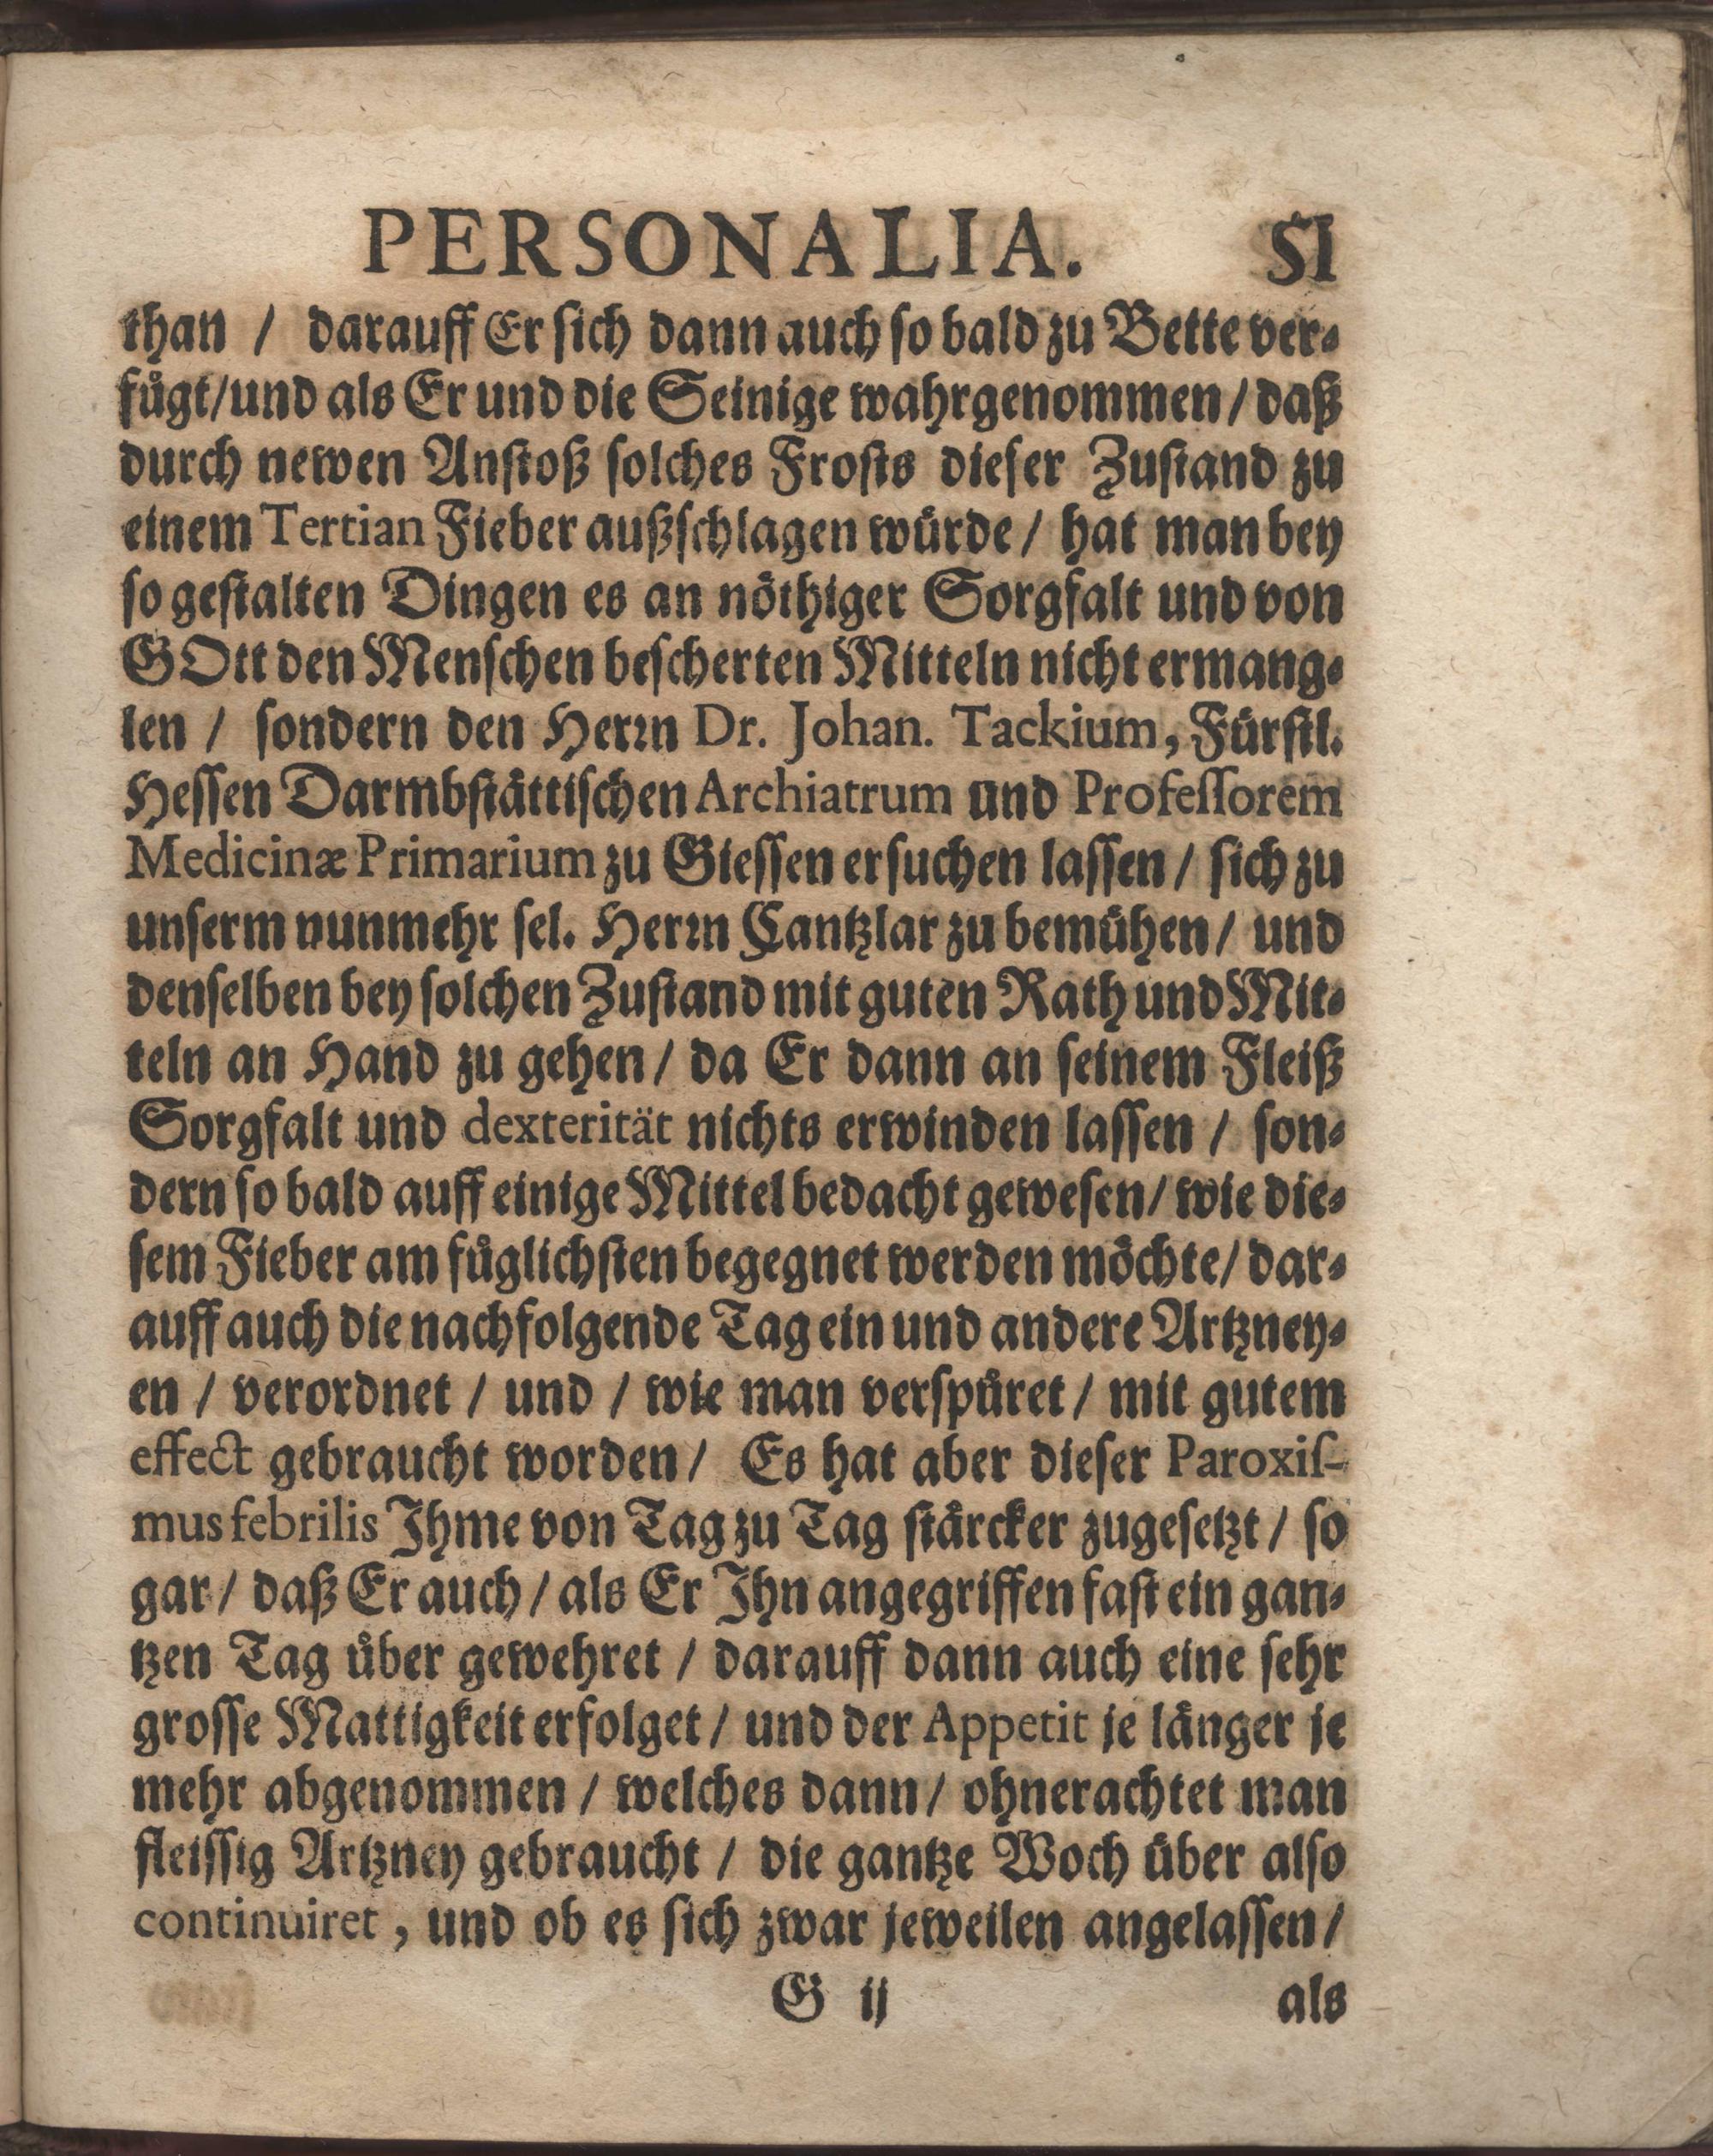 PERSONALIA. 51
than / darauff Er sich dann auch so bald zu Bette ver-
fügt/und als Er und die Seinige wahrgenommen / daß
durch newen Anstoß solches Frosts dieser Zustand zu
einem Tertian Fieber außschlagen würde / hat man bey
so gestalten Dingen es an nöthiger Sorgfalt und von
GOtt den Menschen bescherten Mitteln nicht ermang-
len / sondern den Herrn Dr. Johan. Tackium, Fürstl.
Hessen Darmbstättischen Archiatrum und Professorem
Medicinæ Primarium zu Giessen ersuchen lassen / sich zu
unserm nunmehr sel. Herrn Cantzlar zu bemühen / und
denselben bey solchen Zustand mit guten Rath und Mit-
teln an Hand zu gehen / da Er dann an seinem Fleiß
Sorgfalt und dexterität nichts erwinden lassen / son-
dern so bald auff einige Mittel bedacht gewesen / wie die-
sem Fieber am füglichsten begegnet werden möchte / dar-
auff auch die nachfolgende Tag ein und andere Artzney-
en / verordnet / und / wie man verspüret / mit gutem
effect gebraucht worden / Es hat aber dieser Paroxis-
mus febrilis Ihme von Tag zu Tag stärcker zugesetzt / so
gar / daß Er auch / als Er Ihn angegriffen fast ein gan-
tzen Tag über gewehret / darauff dann auch eine sehr
grosse Mattigkeit erfolget / und der Appetit je länger je
mehr abgenommen / welches dann / ohnerachtet man
fleissig Artzney gebraucht / die gantze Woch über also
continuiret, und ob es sich zwar jeweilen angelassen /
G ij als